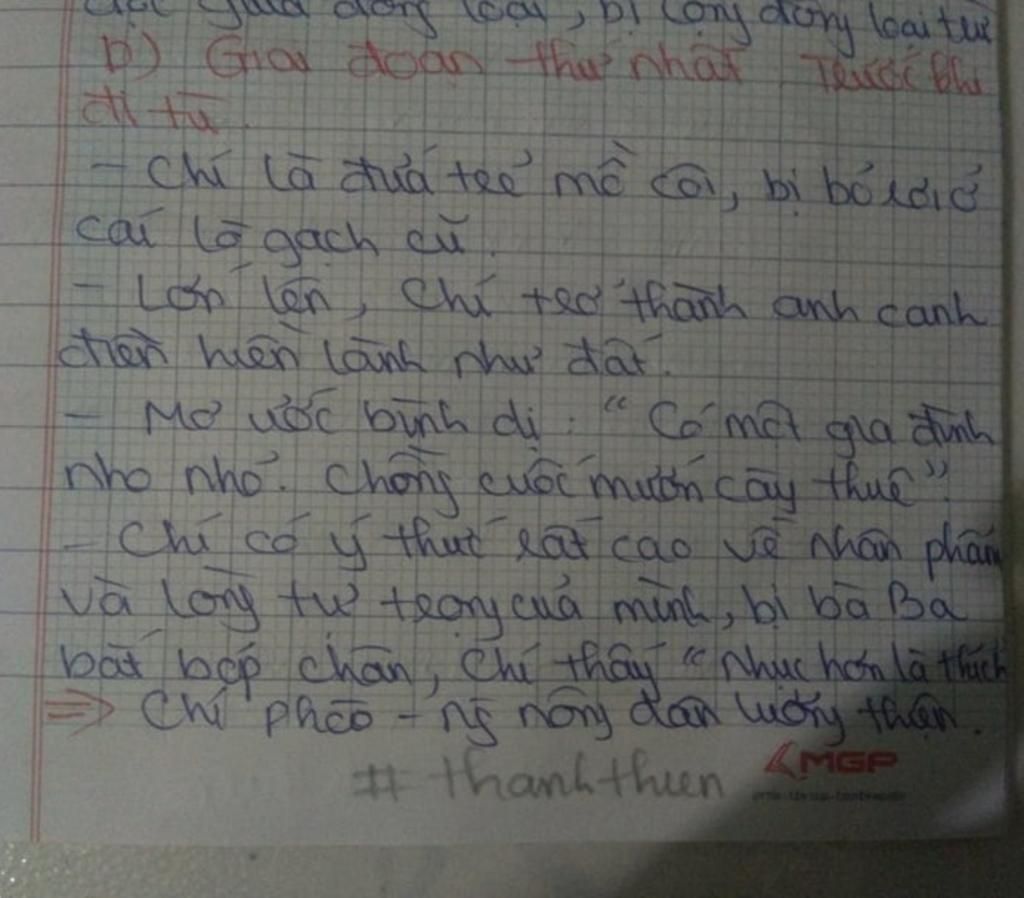 giữa đồng loại, bị cộng đồng loại trừ
b) Giai đoạn thứ nhất Trước khi
đi tù.
- Chí là đứa trẻ mồ côi, bị bỏ rơi ở
cái lò gạch cũ.
- Lớn lên, Chí trở thành anh canh
điền hiền lành như đất.
- Mơ ước bình dị: "Có một gia đình
nho nhỏ. Chồng cuốc mướn cày thuê"
- Chí có ý thức rất cao về nhân phẩm
và lòng tự trọng của mình, bị bà Ba
bắt bóp chân, Chí thấy "nhục hơn là thích
=> Chí phèo - ng nông dân lương thiện.
# thanhthien
MGP